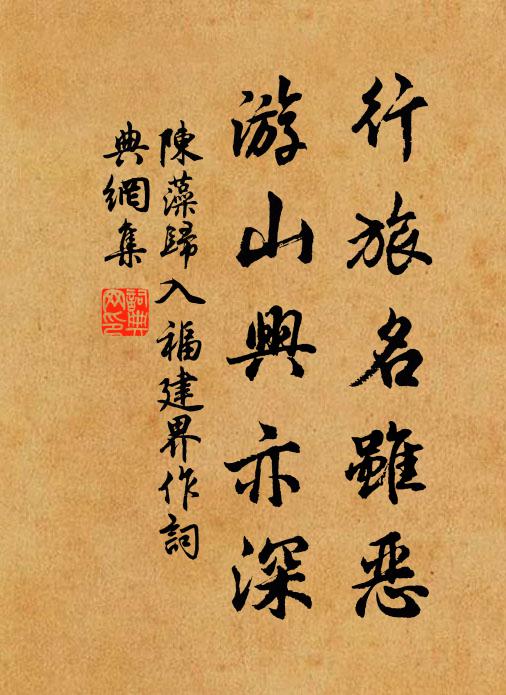 行旅名雖惡
游山興亦深
陳藻歸入福建界作詞
典網集
詞典
网印